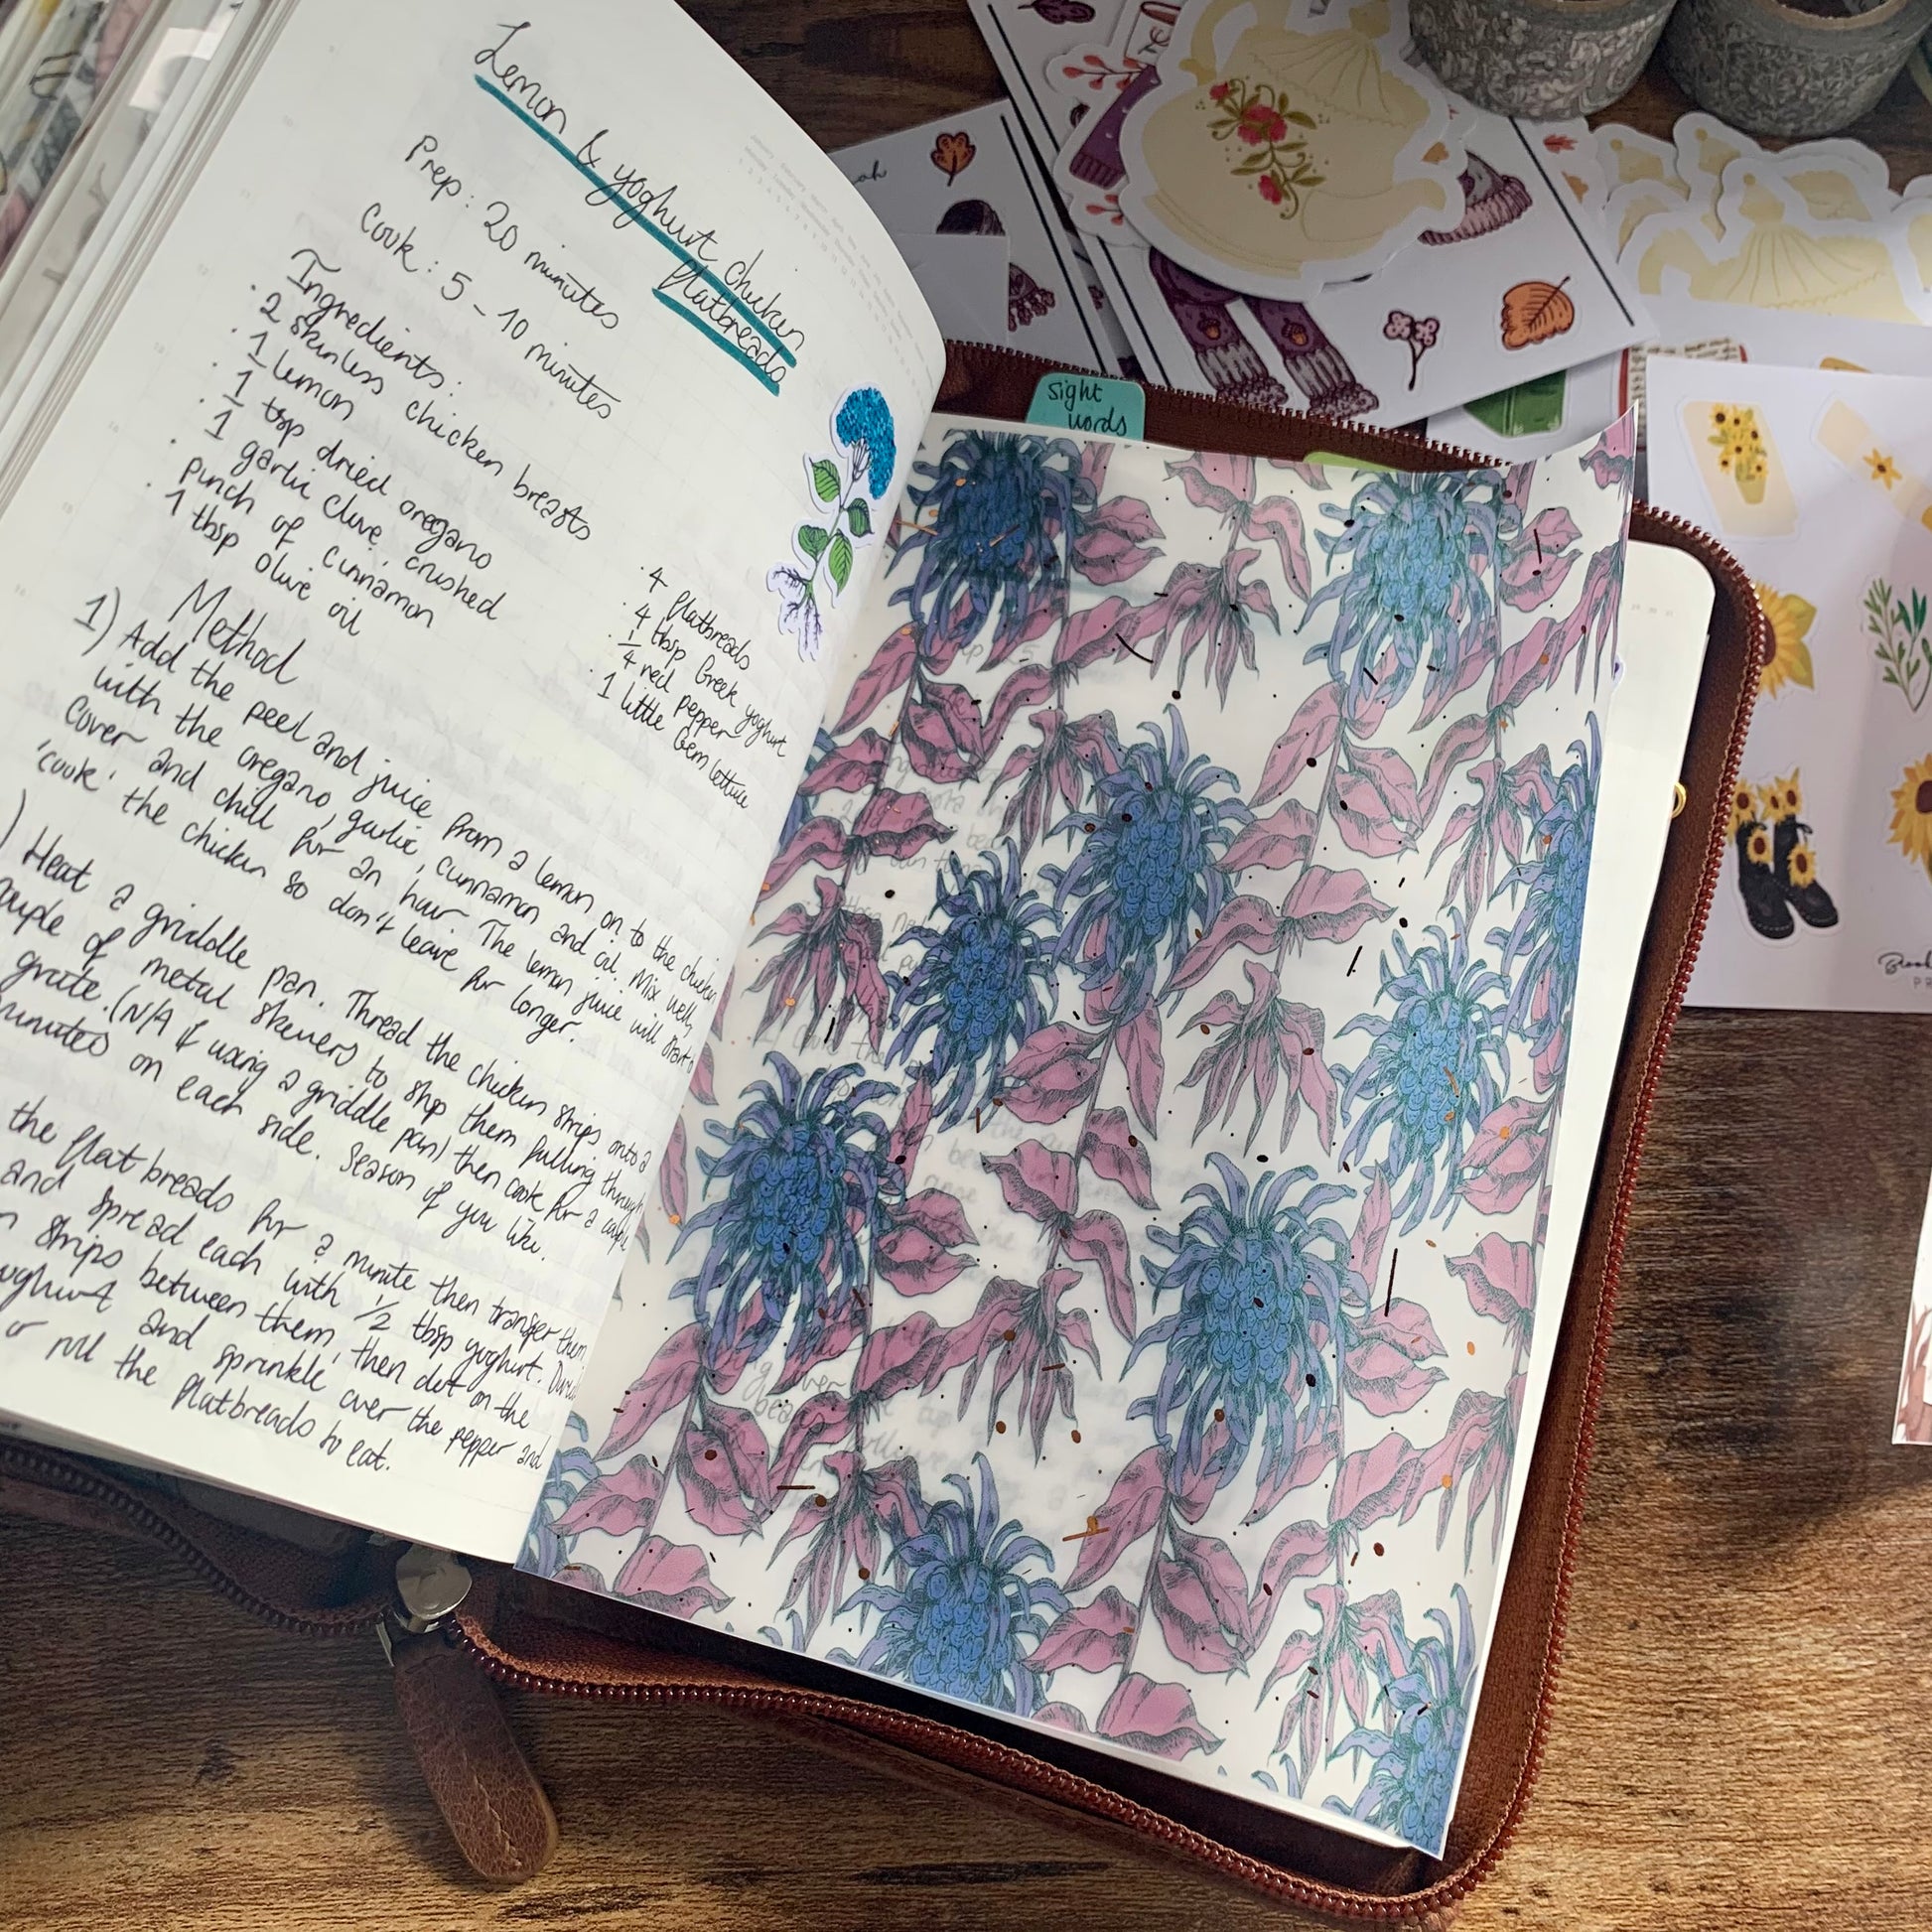 Lemon & yoghurt chicken
flatbreads
Prep: 20 minutes
Cook: 5 - 10 minutes
Ingredients:
· 2 skinless chicken breasts
· 1 lemon
· 1 tsp dried oregano
· 1 garlic clove, crushed
· pinch of cinnamon
· 1 tbsp olive oil
· 4 flatbreads
· 4 tbsp Greek yoghurt
· 1/4 red pepper
· 1 little Gem lettuce
Method
1) Add the peel and juice from a lemon on to the chicken
with the oregano, garlic, cinnamon and oil. Mix well,
cover and chill for an hour. The lemon juice will start to
'cook' the chicken so don't leave for longer.
) Heat a griddle pan. Thread the chicken strips onto a
couple of metal skewers to stop them falling through
grate. (N/A if using a griddle pan) then cook for a couple
minutes on each side. Season if you like.
the flat breads for a minute then transfer them
and spread each with 1/2 tbsp yoghurt.
strips between them, then dot on the
yoghurt and sprinkle over the pepper and
or roll the flatbreads to eat.
sight
words